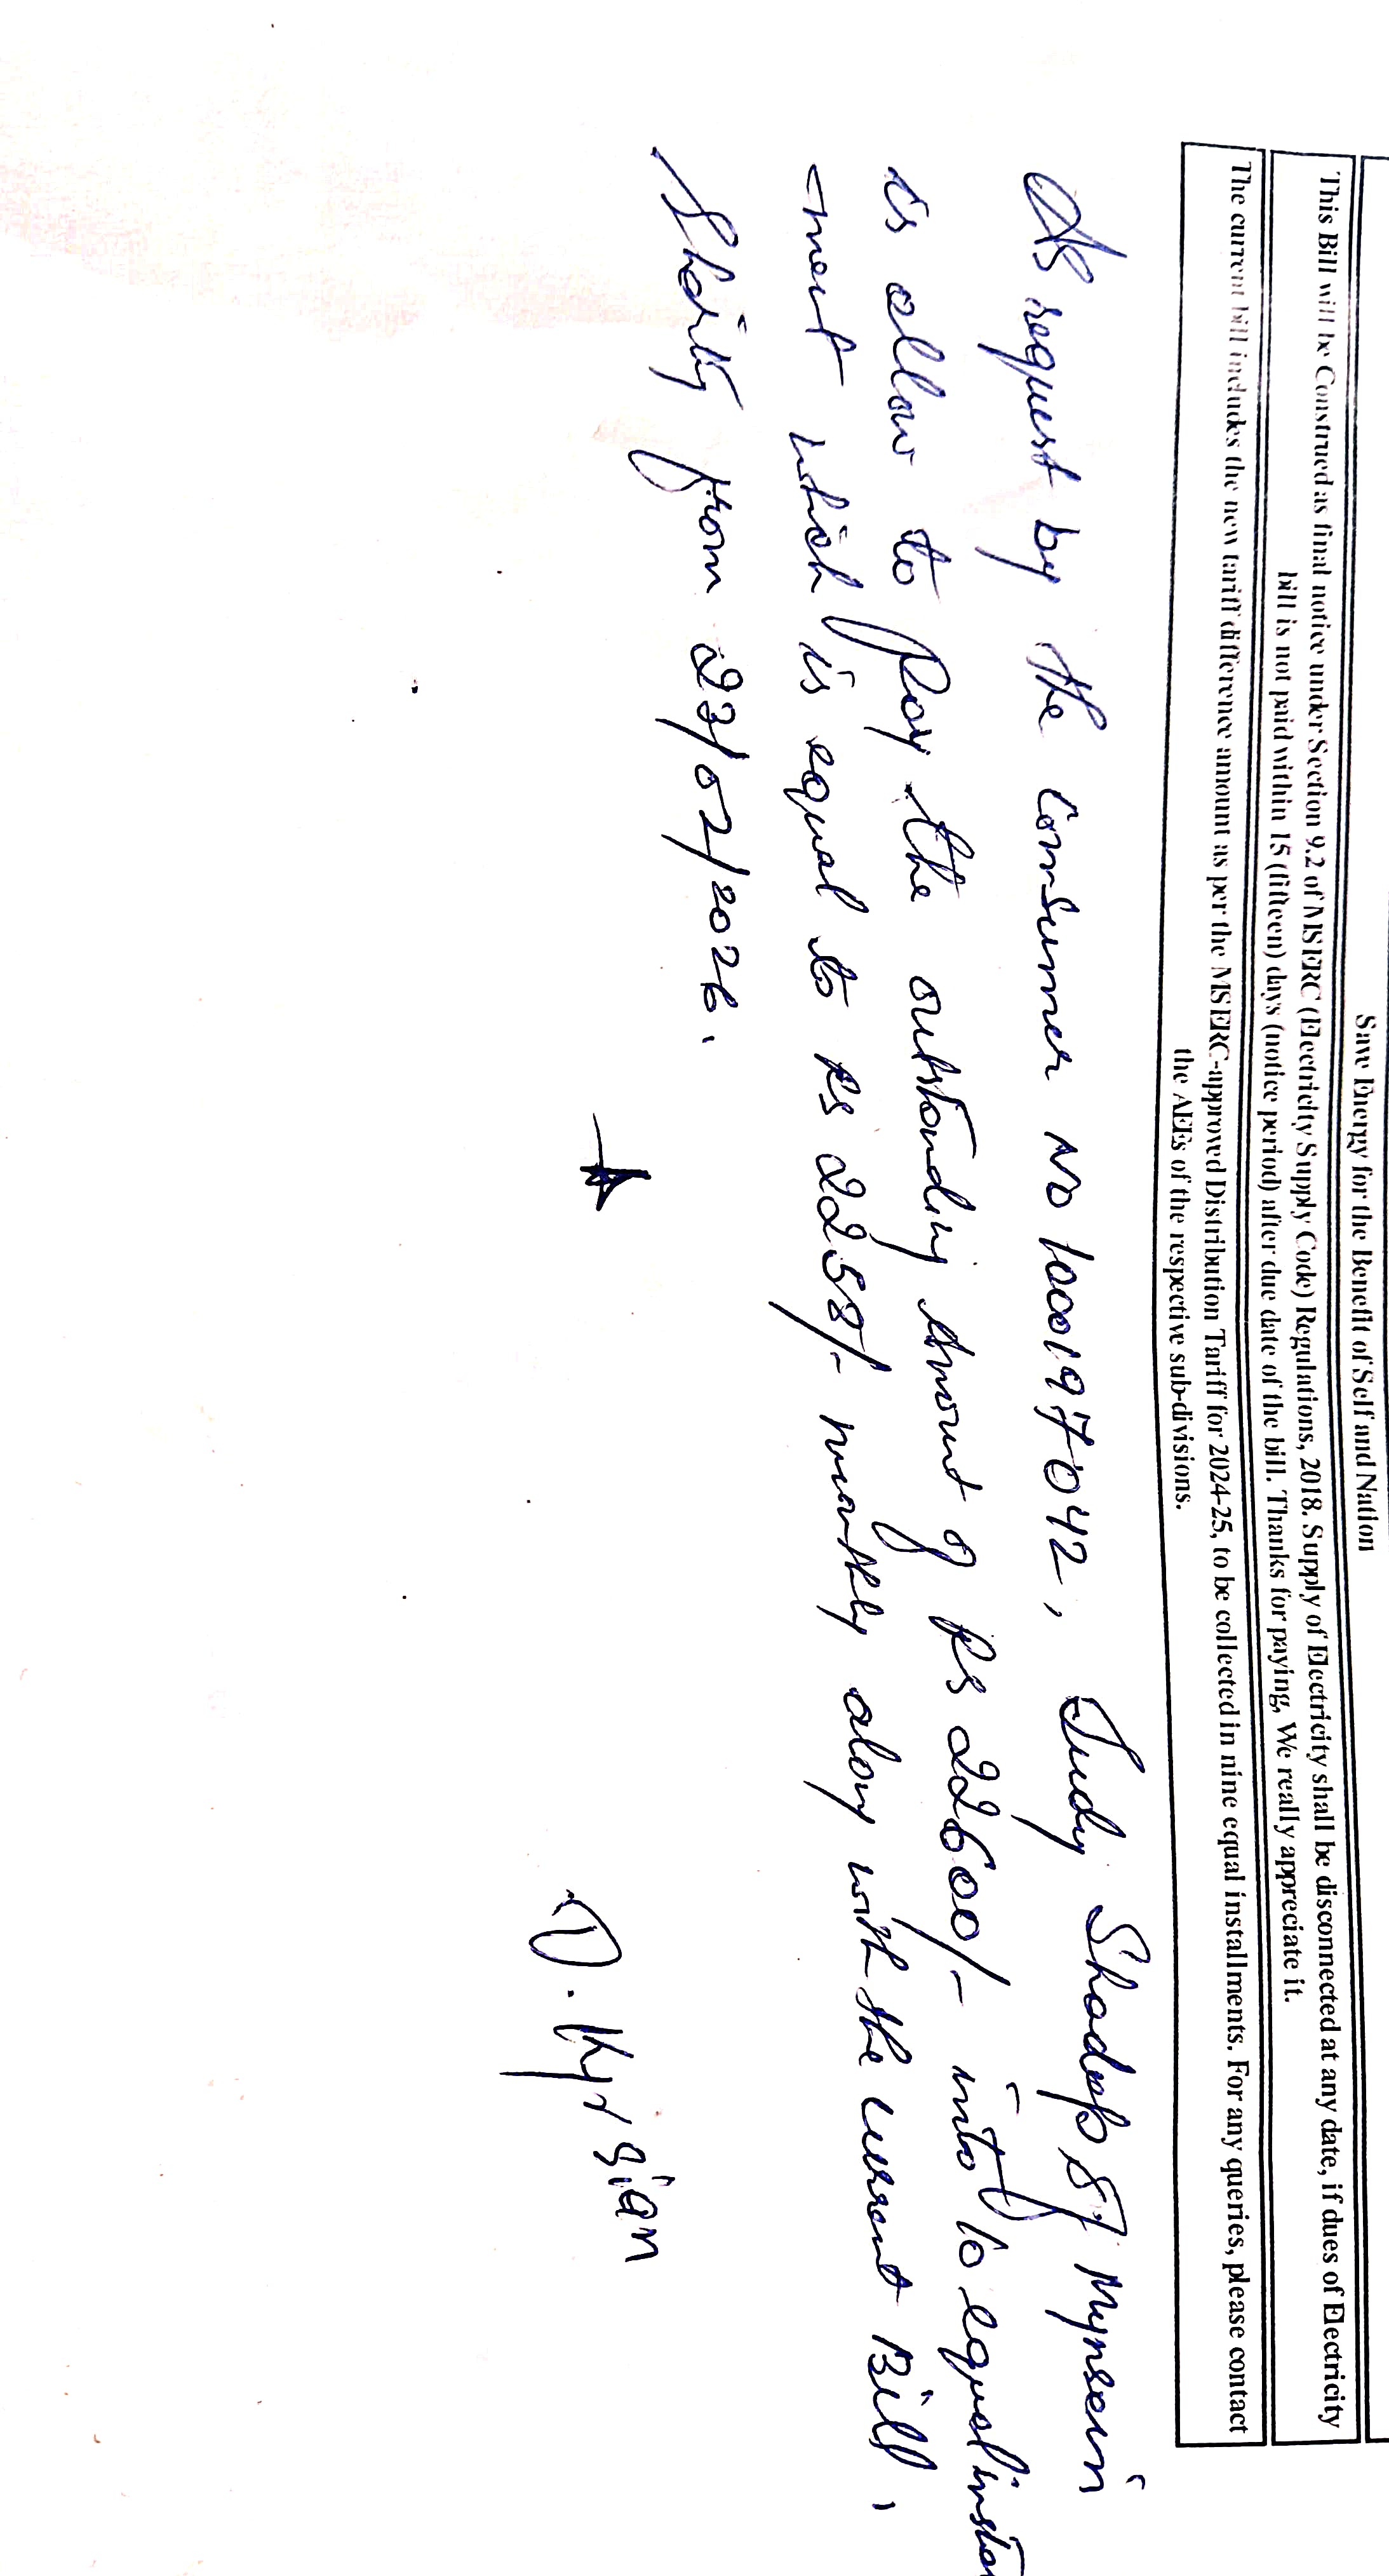 Save Energy for the Benefit of Self and Nation
This Bill will be Construed as final notice under Section 9.2 of MSERC (Electricity Supply Code) Regulations, 2018. Supply of Electricity shall be disconnected at any date, if dues of Electricity
bill is not paid within 15 (fifteen) days (notice period) after due date of the bill. Thanks for paying, We really appreciate it.
The current bill includes the new tariff difference amount as per the MSERC-approved Distribution Tariff for 2024-25, to be collected in nine equal installments. For any queries, please contact
the AEEs of the respective sub-divisions.
As request by the Consumer No 1000197042, Judy Shadap Mynsein
is allow to Pay the outstanding Amount of Rs 22600/- into 10 equal insta
-ment which is equal to Rs 2258/- monthly along with the current Bill.
Starting from 23/02/2026.
D. Kyrsian